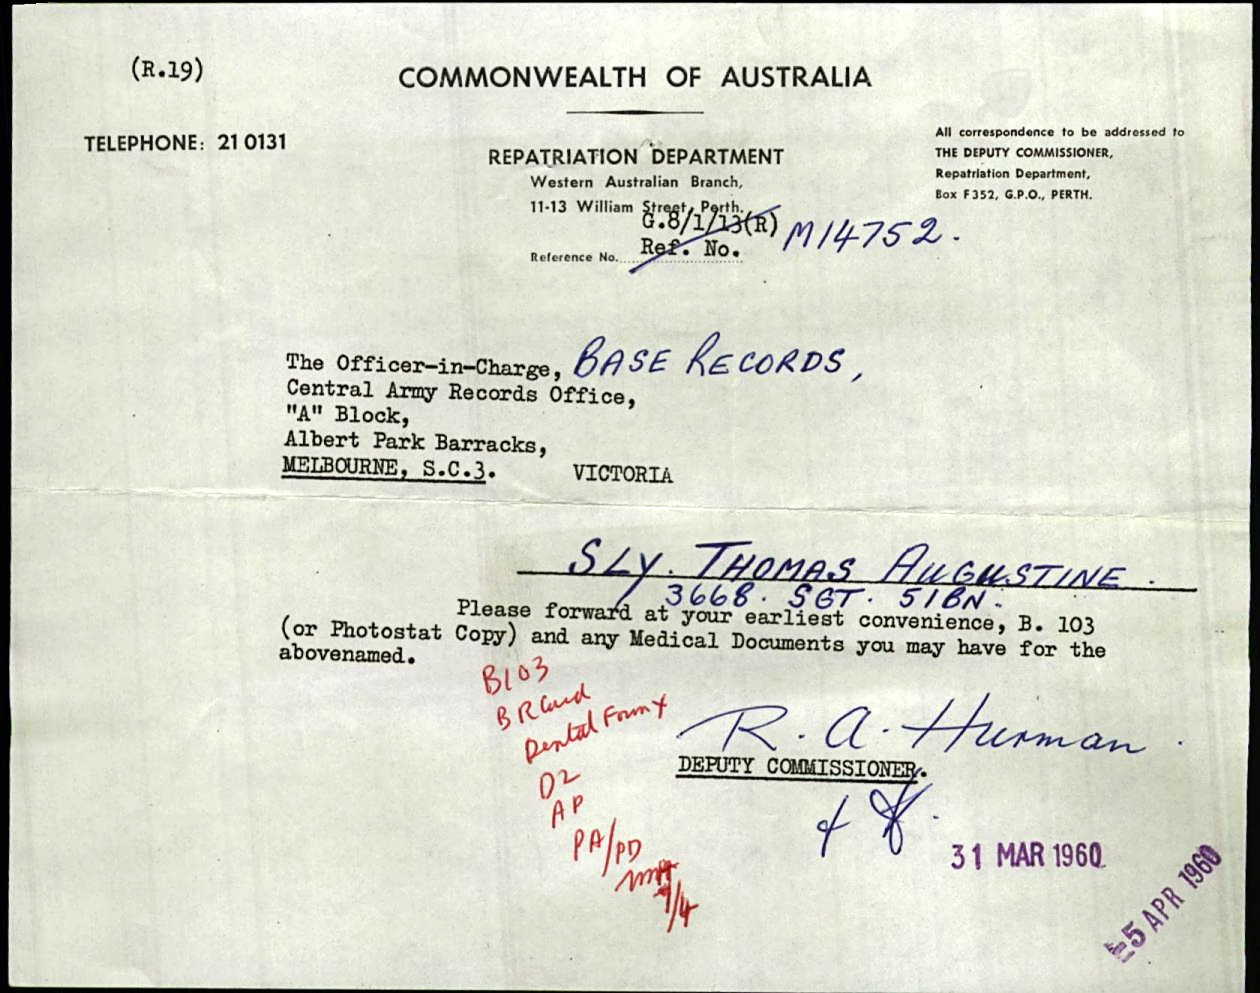 (R.19)
COMMONWEALTH OF AUSTRALIA
TELEPHONE: 21 0131
REPATRIATION DEPARTMENT
Western Australian Branch,
11-13 William Street, Perth.
All correspondence to be addressed to
THE DEPUTY COMMISSIONER,
Repatriation Department,
Box F352, G.P.O., PERTH.
G.8/1/13(R)
M14752.
Reference No. Ref. No.
The Officer-in-Charge, BASE RECORDS,
Central Army Records Office,
"A" Block,
Albert Park Barracks,
MELBOURNE, S.C.3. VICTORIA
SLY. THOMAS AUGUSTINE.
3668. SGT. 51BN.
Please forward at your earliest convenience, B. 103
(or Photostat Copy) and any Medical Documents you may have for the
abovenamed.
B103
B R Card
Dental Form X
D2
AP
PA/PD
/4
R. A. Hurman
DEPUTY COMMISSIONER.
31 MAR 1960
5 APR 1960